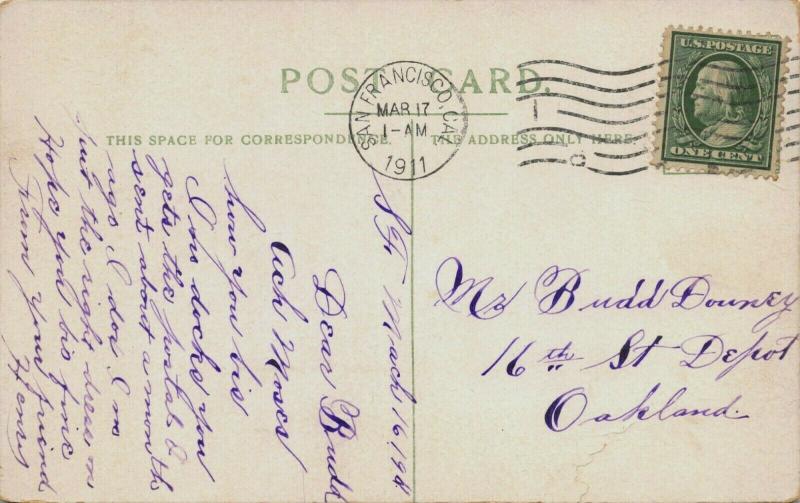 POST CARD.
THIS SPACE FOR CORRESPONDENCE.
THE ADDRESS ONLY HERE.
SAN FRANCISCO, CAL.
MAR 17
1-AM
1911
U.S. POSTAGE
ONE CENT
S F. Mach 16 19
Dear Budd
Ach Moses
how you bis
I m docks you
gets the postal I
sent about a month
ago I don I m
the right dress m
Hope you bis fine
From your friend
Henry
Mr Budd Downey
16th St Depot
Oakland.